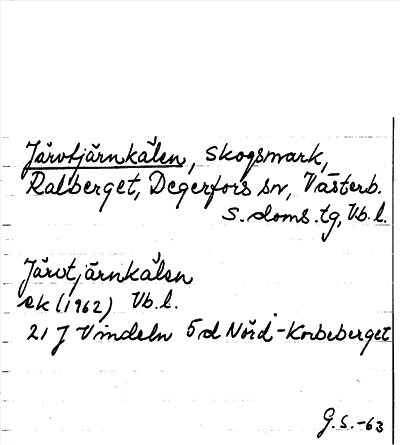 Järvtjärnkälen, skogsmark,
Ralberget, Degerfors sn, Västerb.
s. doms. tg, Vb. l.
Järvtjärnkälen
ek (1962) Vb. l.
21 J Vindeln 5d Nörd-Korbeberget
G. S. -63